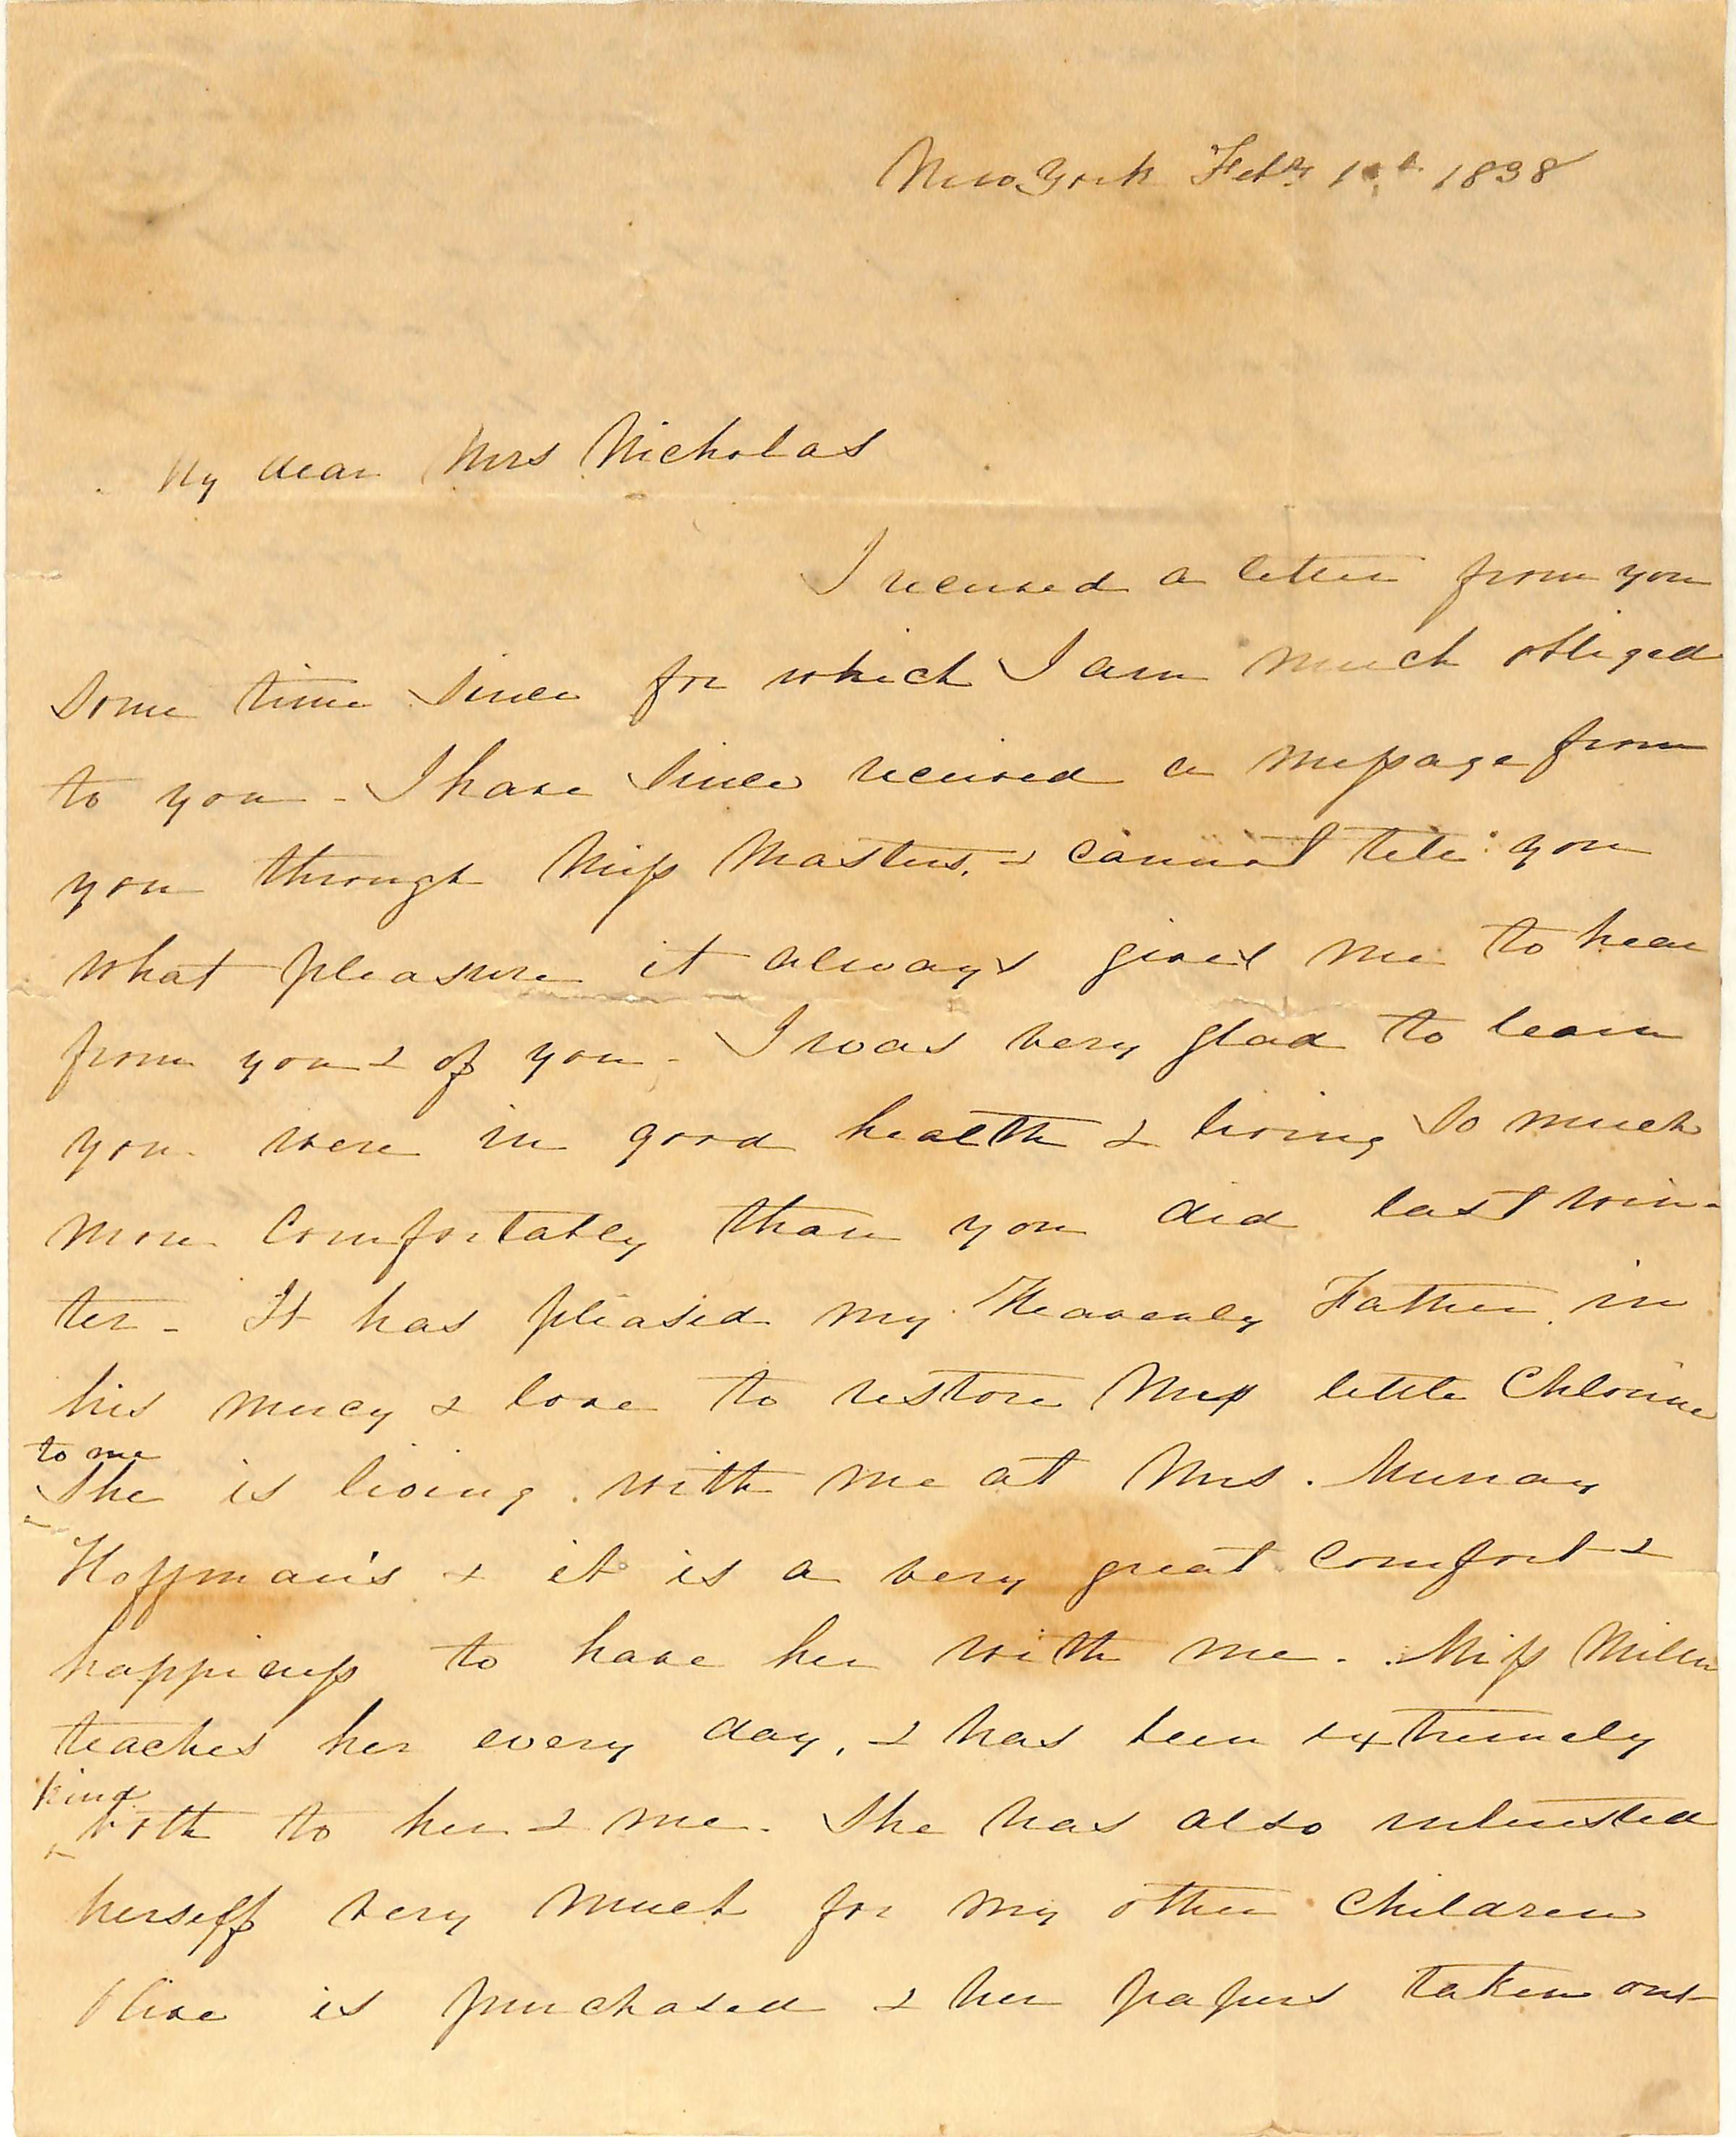 New York Feby 1st 1838
My dear Mrs Nicholas
I recieved a letter from you
some time since for which I am much obliged
to you - I have since recieved a message from
you through Miss Masters, & cannot tell you
what pleasure it always gives me to hear
from you & of you - I was very glad to learn
you were in good health & living so much
more comfortably than you did last win-
ter - It has pleased my Heavenly Father in
his mercy & love to restore my little
to me
She is living with me at Mrs. Murray
Hoffman's & it is a very great comfort &
happiness to have her with me. Miss Miller
teaches her every day, & has been extremely
kind
both to her & me. She has also interested
herself very much for my other children
Olive is purchased & her papers taken out